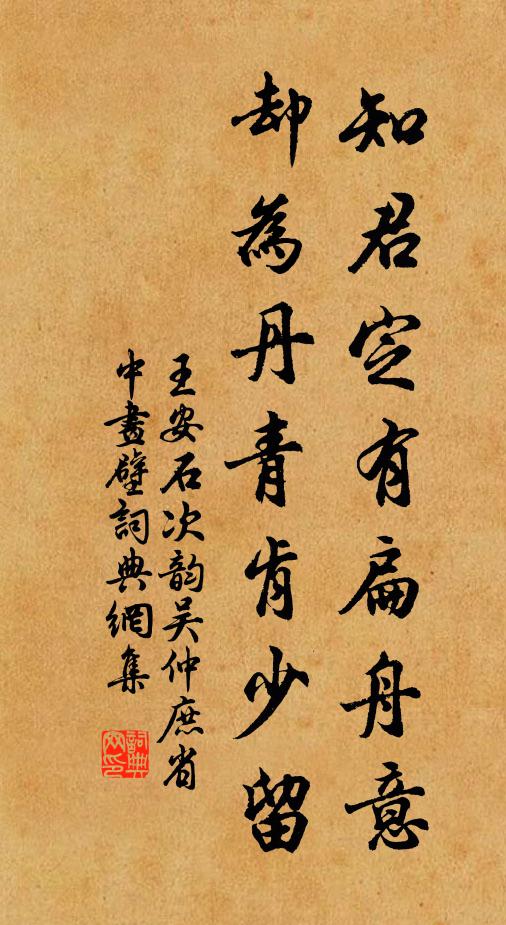 知君定有扁舟意
却為丹青肯少留
王安石次韵吴仲庶省
中畫壁詞典網集
詞典網印